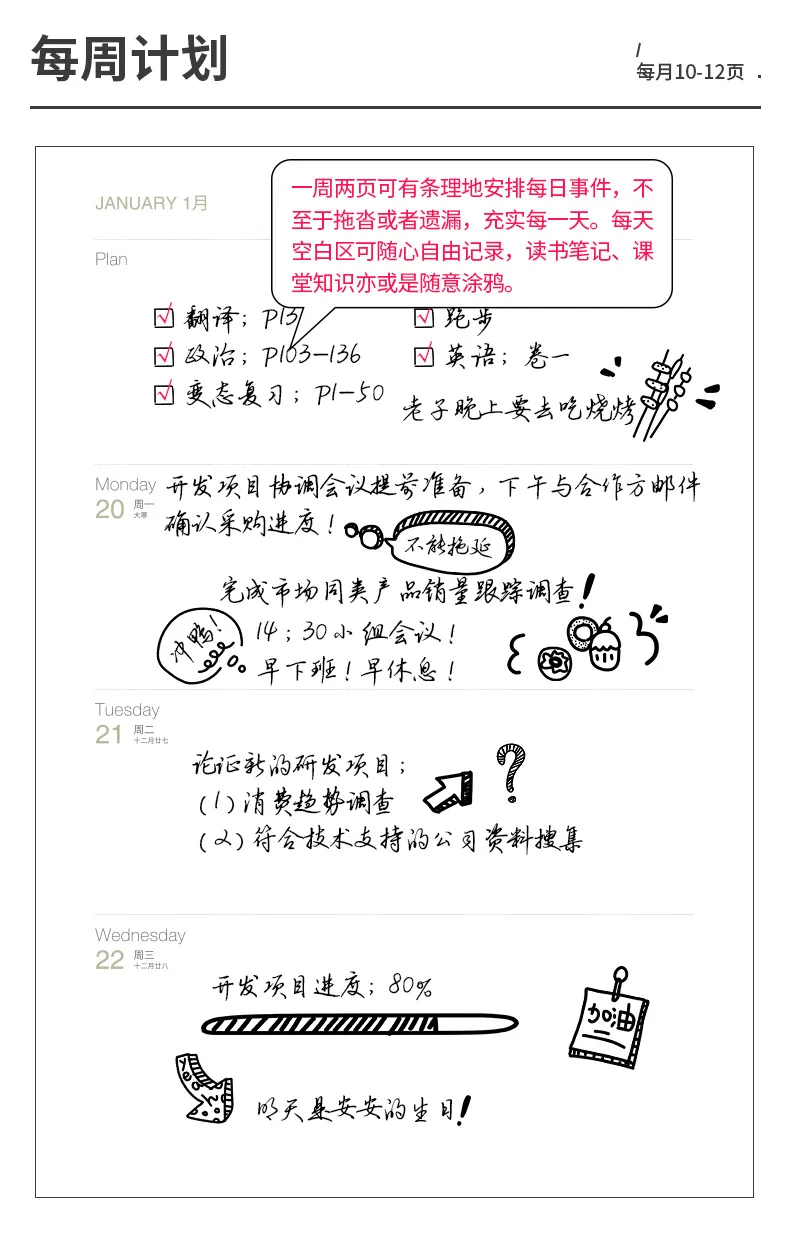 每周计划
/
每月10-12页 .
JANUARY 1月
一周两页可有条理地安排每日事件，不
至于拖沓或者遗漏，充实每一天。每天
空白区可随心自由记录，读书笔记、课
堂知识亦或是随意涂鸦。
Plan
翻译；P13
跑步
政治；P103-136
英语；卷一
变态复习；P1-50
老子晚上要去吃烧烤
Monday
20 周一
大寒
开发项目协调会议提前准备，下午与合作方邮件
确认采购进度！
不能拖延
完成市场同类产品销量跟踪调查！
冲鸭！
14；30小组会议！
早下班！早休息！
Tuesday
21 周二
十二月廿七
论证新的研发项目；
(1)消费趋势调查
(2)符合技术支持的公司资料搜集
Wednesday
22 周三
十二月廿八
开发项目进度；80%
加油
明天是安安的生日！